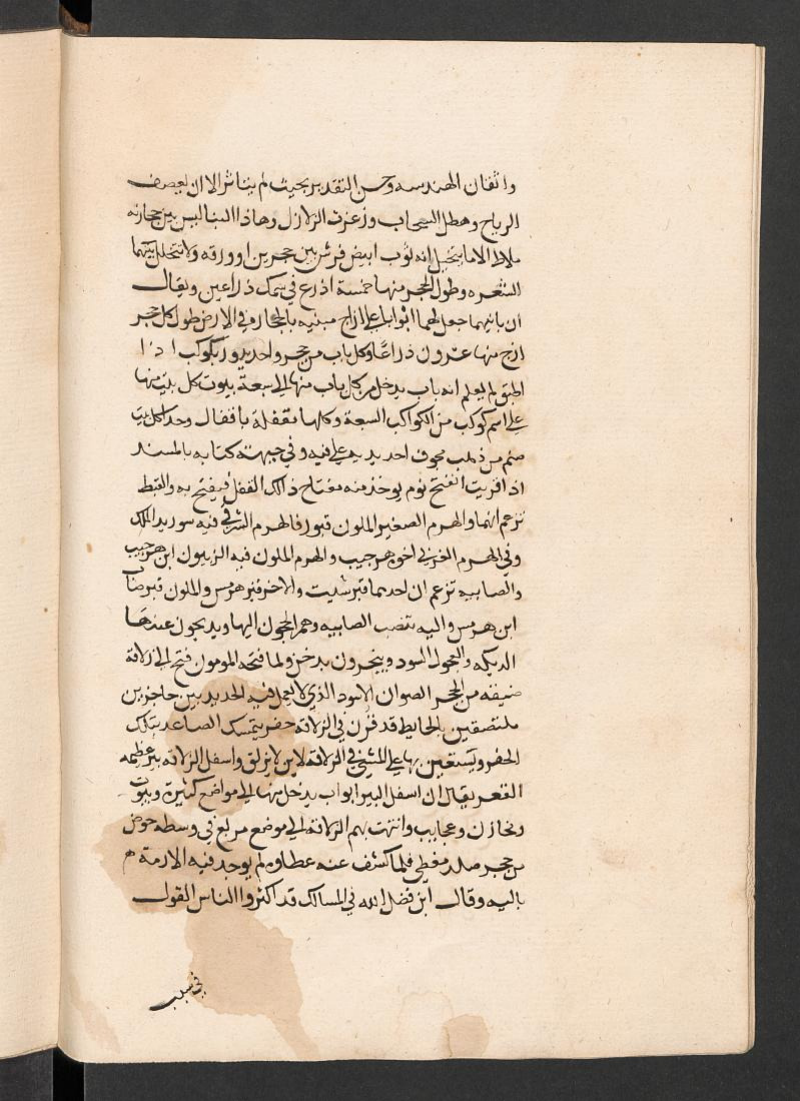 واتقان الهندسه وحسن التقدير بحيث لم يتاثر الا ان لعصف
الرياح وهطل السحاب وزعزعت الزلازل وهاذا البنا ليس بين حجارته
ملاط الا ما يتخيل انه ثوب ابيض فرش بين حجرين او ورقه ولا تتخلل بينهما
الشعره وطول الحجر منها خمسة اذرع في سمك ذراعين ويقال
ان بانيهما جعل لهما ابوابا على ازاج مبنيه بالحجاره في الارض طول كل حجر
ازج منها عشرون ذراعًا وكل باب من حجر واحد يدور بكوكب اذا
اطبق لم يعلم انه باب يدخل من كل باب منها الى سبعة بيوت كل بيت منها
على اسم كوكب من الكواكب السبعة وكلها مقفلة باقفال وحدا كل بيت
صنم من ذهب مجوف احد يديه على فيه وفي جبهته كتابه بالمسند
اذا قريت انفتح فوه يوخذ منه مفتاح ذالك القفل فيفتح به والقبط
تزعم انهما والهرم الصغير الملون قبور فالهرم الشرقي فيه سوريد الملك
وفي الهرم الغربي اخوه هرجيب والهرم الملون فيه افريبون ابن هرجيب
والصابيه تزعم ان احدهما قبر شيت والاخر قبر هرمس والملون قبر صا
ابن هرمس واليه تنتسب الصابيه وهم يحجون اليها ويذبحون عندها
الديكه والعجول السود ويبخرون بدخن ولما فتحه المومون فتح الى زلاقة
ضيقه من الحجر الصوان الاسود الذي لا يعمل فيه الحديد بين حاجزين
ملتصقين بالحايط قد نقر في الزلاقه حفر يتمسك الصاعد بتلك
الحفر ويستعين بها على المشي في الزلاقة لان لا يزلق واسفل الزلاقه بير عظيمه
القعر يقال ان اسفل البير ابواب يدخل منها الى مواضع كثيرة وبيوت
ومخازن وعجايب وانتهت بهم الزلاقة الى موضع مربع في وسطه حوض
من حجر صلد مغطى فلما كشف عنه غطاوه لم يوجد فيه الا رمة
باليه وقال ابن فضل الله في المسالك قد اكثروا الناس القول
في سبب